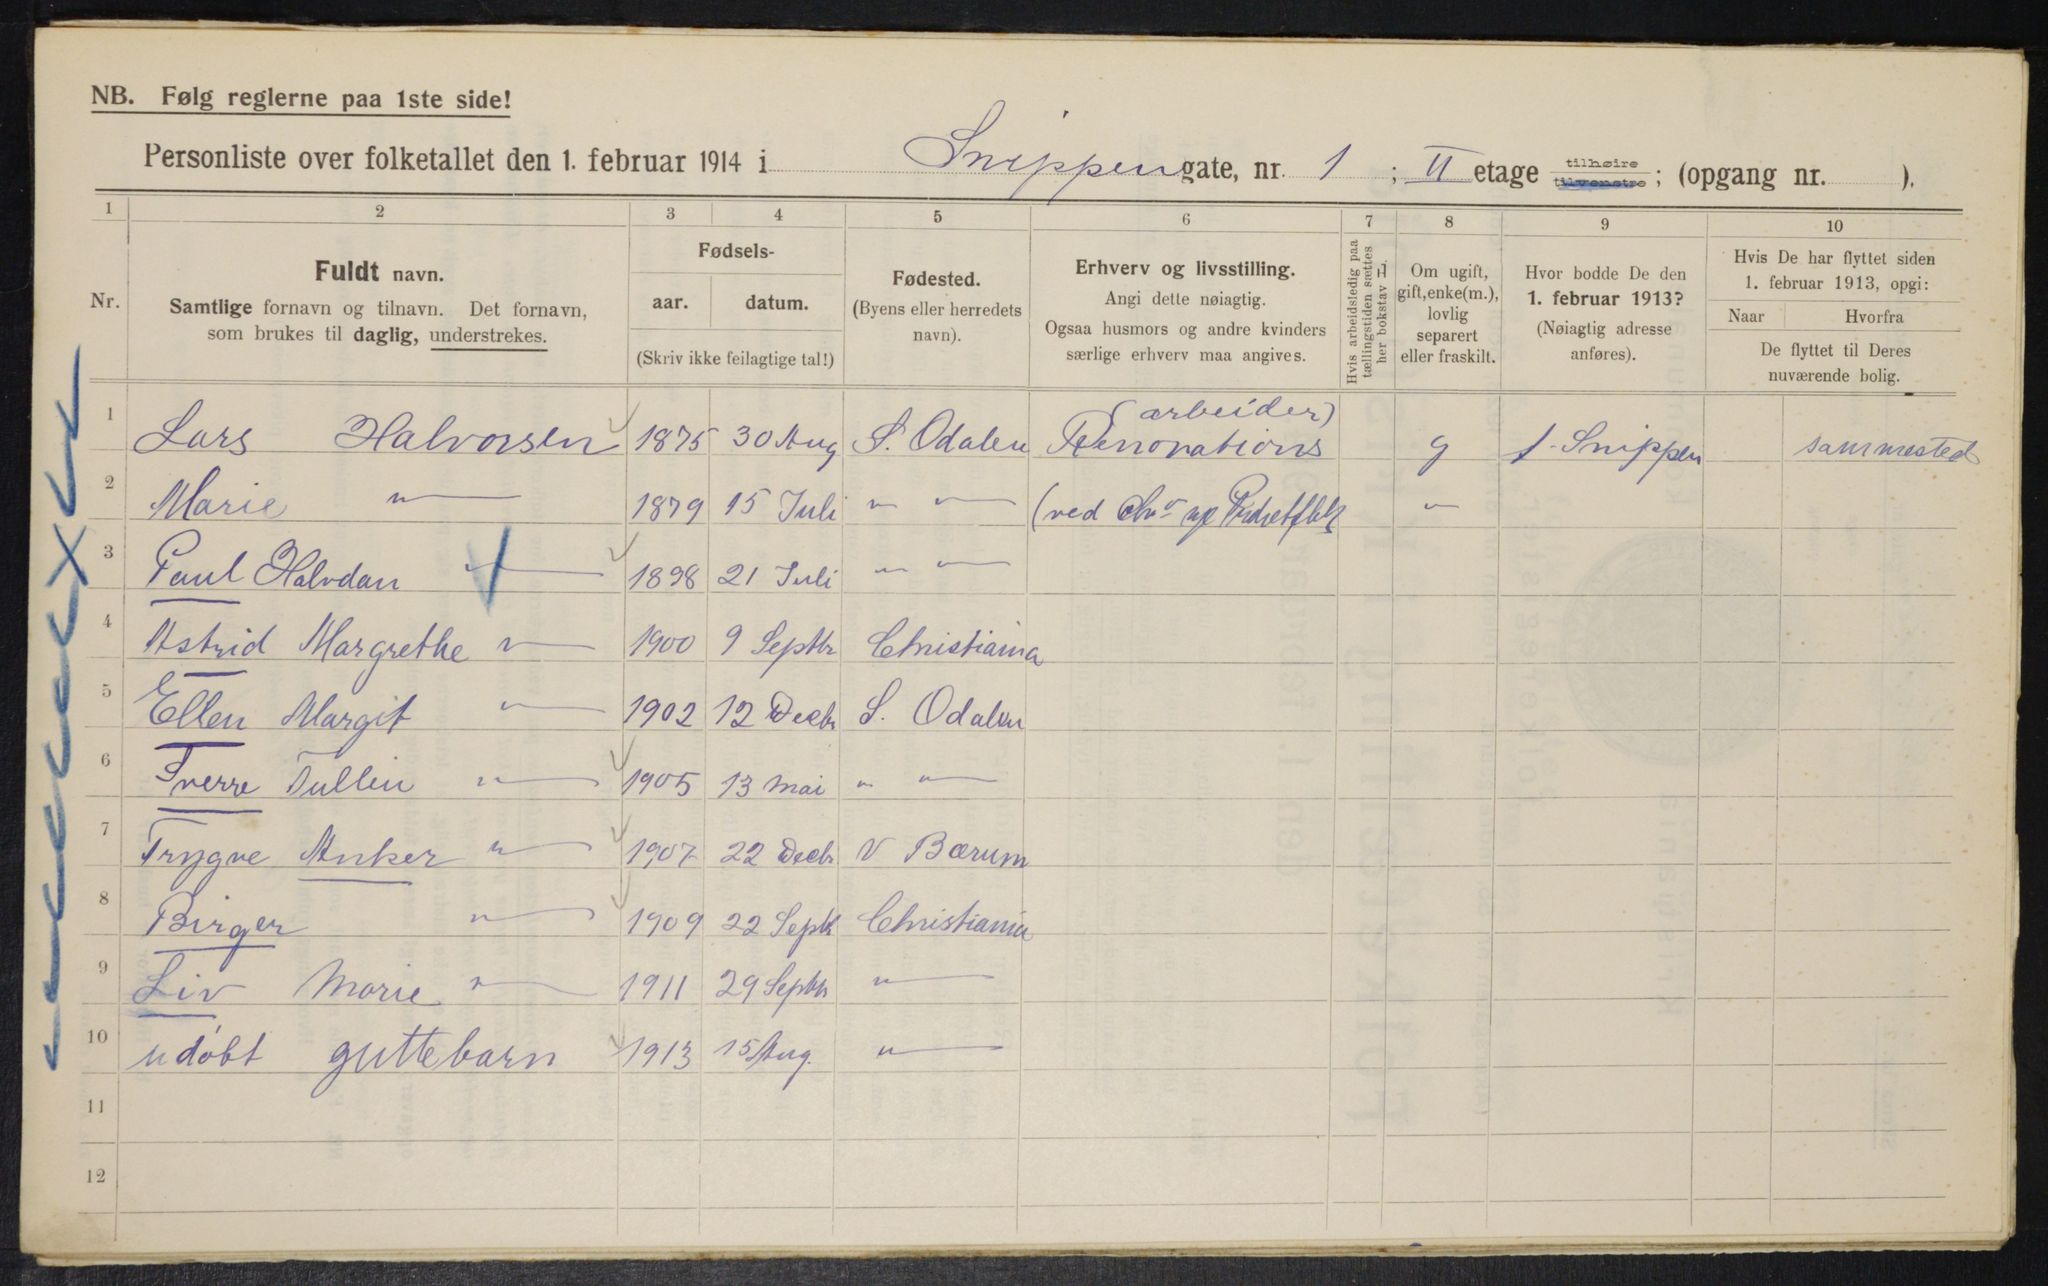 NB. Følg reglerne paa 1ste side!
Personliste over folketallet den 1. februar 1914 i Snippen gate, nr. 1 ; II etage tilhøire tilvenstre ; (opgang nr. ).
1 2 3 4 5 6 7 8 9 10
Nr.
Fuldt navn.
Samtlige fornavn og tilnavn. Det fornavn,
som brukes til daglig, understrekes.
Fødsels-
aar. datum.
(Skriv ikke feilagtige tal!)
Fødested.
(Byens eller herredets
navn).
Erhverv og livsstilling.
Angi dette nøiagtig.
Ogsaa husmors og andre kvinders
særlige erhverv maa angives.
Hvis arbeidsledig paa
tællingstiden sættes
her bokstav L.
Om ugift,
gift, enke(m.),
lovlig
separert
eller fraskilt.
Hvor bodde De den
1. februar 1913?
(Nøiagtig adresse
anføres).
Hvis De har flyttet siden
1. februar 1913, opgi:
Naar Hvorfra
De flyttet til Deres
nuværende bolig.
(arbeider)
1 Lars Halvorsen 1875 30 Aug S. Odalen Renovations g 1 Snippen sammested
2 Marie " 1879 15 Juli " " (ved "
3 Paul Halvdan " 1898 21 Juli " "
4 Astrid Margrethe " 1900 9 Septbr Christiania
5 Ellen Margit " 1902 12 Decbr S. Odalen
6 Sverre Tullin " 1905 13 Mai " "
7 Trygve Anker " 1907 22 Decbr V Bærum
8 Birger " 1909 22 Septbr Christiania
9 Liv Marie " 1911 29 Septbr "
10 udøbt guttebarn 1913 15 Aug. "
11
12